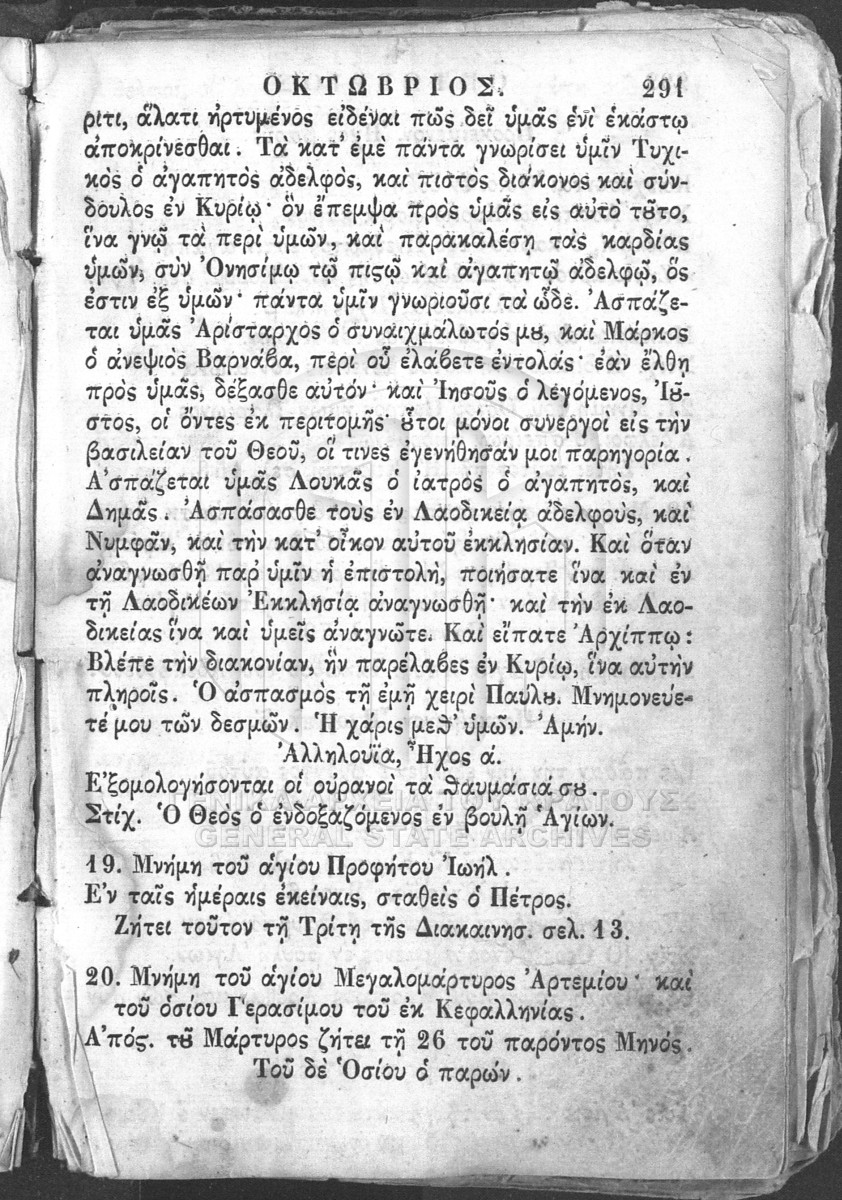 ΟΚΤΩΒΡΙΟΣ. 291
ριτι, ἅλατι ἠρτυμένος εἰδέναι πῶς δεῖ ὑμᾶς ἑνὶ ἑκάστῳ
ἀποκρίνεσθαι. Τὰ κατ' ἐμὲ πάντα γνωρίσει ὑμῖν Τυχι-
κὸς ὁ ἀγαπητὸς ἀδελφὸς, καὶ πιστὸς διάκονος καὶ σύν-
δουλος ἐν Κυρίῳ· ὃν ἔπεμψα πρὸς ὑμᾶς εἰς αὐτὸ τȣ̃το,
ἵνα γνῷ τὰ περὶ ὑμῶν, καὶ παρακαλέσῃ τὰς καρδίας
ὑμῶν, σὺν Ὀνησίμῳ τῷ πιϛῷ καὶ ἀγαπητῷ ἀδελφῷ, ὅς
ἐστιν ἐξ ὑμῶν· πάντα ὑμῖν γνωριοῦσι τὰ ὧδε. Ἀσπάζε-
ται ὑμᾶς Ἀρίσταρχος ὁ συναιχμάλωτός μȣ, καὶ Μάρκος
ὁ ἀνεψιὸς Βαρνάβα, περὶ οὗ ἐλάβετε ἐντολάς· ἐὰν ἔλθῃ
πρὸς ὑμᾶς, δέξασθε αὐτόν· καὶ Ἰησοῦς ὁ λεγόμενος, Ἰȣ̃-
στος, οἱ ὄντες ἐκ περιτομῆς· ȣ̃τοι μόνοι συνεργοὶ εἰς τὴν
βασιλείαν τοῦ Θεοῦ, οἵ τινες ἐγενήθησάν μοι παρηγορία.
Ἀσπάζεται ὑμᾶς Λουκᾶς ὁ ἰατρὸς ὁ ἀγαπητὸς, καὶ
Δημᾶς. Ἀσπάσασθε τοὺς ἐν Λαοδικείᾳ ἀδελφοὺς, καὶ
Νυμφᾶν, καὶ τὴν κατ' οἶκον αὐτοῦ ἐκκλησίαν. Καὶ ὅταν
ἀναγνωσθῇ παρ' ὑμῖν ἡ ἐπιστολὴ, ποιήσατε ἵνα καὶ ἐν
τῇ Λαοδικέων Ἐκκλησίᾳ ἀναγνωσθῇ· καὶ τὴν ἐκ Λαο-
δικείας ἵνα καὶ ὑμεῖς ἀναγνῶτε. Καὶ εἴπατε Ἀρχίππῳ:
Βλέπε τὴν διακονίαν, ἣν παρέλαβες ἐν Κυρίῳ, ἵνα αὐτὴν
πληροῖς. Ὁ ἀσπασμὸς τῇ ἐμῇ χειρὶ Παύλȣ. Μνημονεύε-
τέ μου τῶν δεσμῶν. Ἡ χάρις μεθ' ὑμῶν. Ἀμήν.
Ἀλληλούϊα, Ἦχος ά.
Ἐξομολογήσονται οἱ οὐρανοὶ τὰ θαυμάσιά σȣ.
Στίχ. Ὁ Θεὸς ὁ ἐνδοξαζόμενος ἐν βουλῇ Ἁγίων.
ΓΕΝΙΚΑ ΑΡΧΕΙΑ ΤΟΥ ΚΡΑΤΟΥΣ
GENERAL STATE ARCHIVES
19. Μνήμη τοῦ ἁγίου Προφήτου Ἰωήλ.
Ἐν ταῖς ἡμέραις ἐκείναις, σταθεὶς ὁ Πέτρος.
Ζήτει τοῦτον τῇ Τρίτῃ τῆς Διακαινησ. σελ. 13.
20. Μνήμη τοῦ ἁγίου Μεγαλομάρτυρος Ἀρτεμίου· καὶ
τοῦ ὁσίου Γερασίμου τοῦ ἐκ Κεφαλληνίας.
Ἀπόϛ. τȣ̃ Μάρτυρος ζήτει τῇ 26 τοῦ παρόντος Μηνός.
Τοῦ δὲ Ὁσίου ὁ παρών.